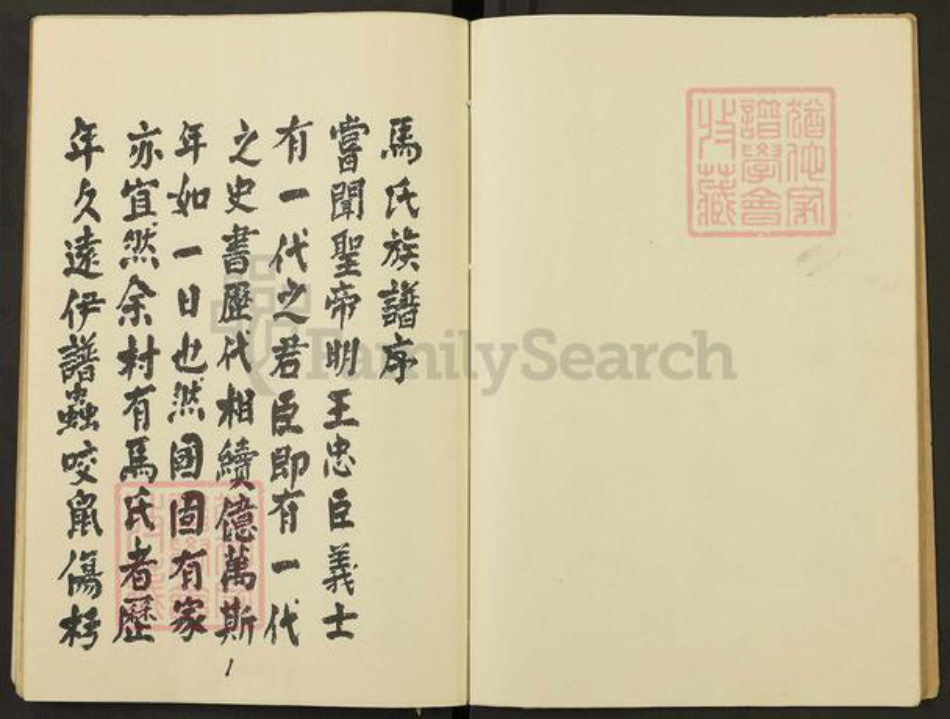 馬氏族譜序
嘗聞聖帝明王忠臣義士
有一代之君臣即有一代
之史書歷代相續億萬斯
年如一日也然國固有家
亦宜然余村有馬氏者歷
年久遠伊譜蟲咬鼠傷朽
1
FamilySearch
譜學會
收藏